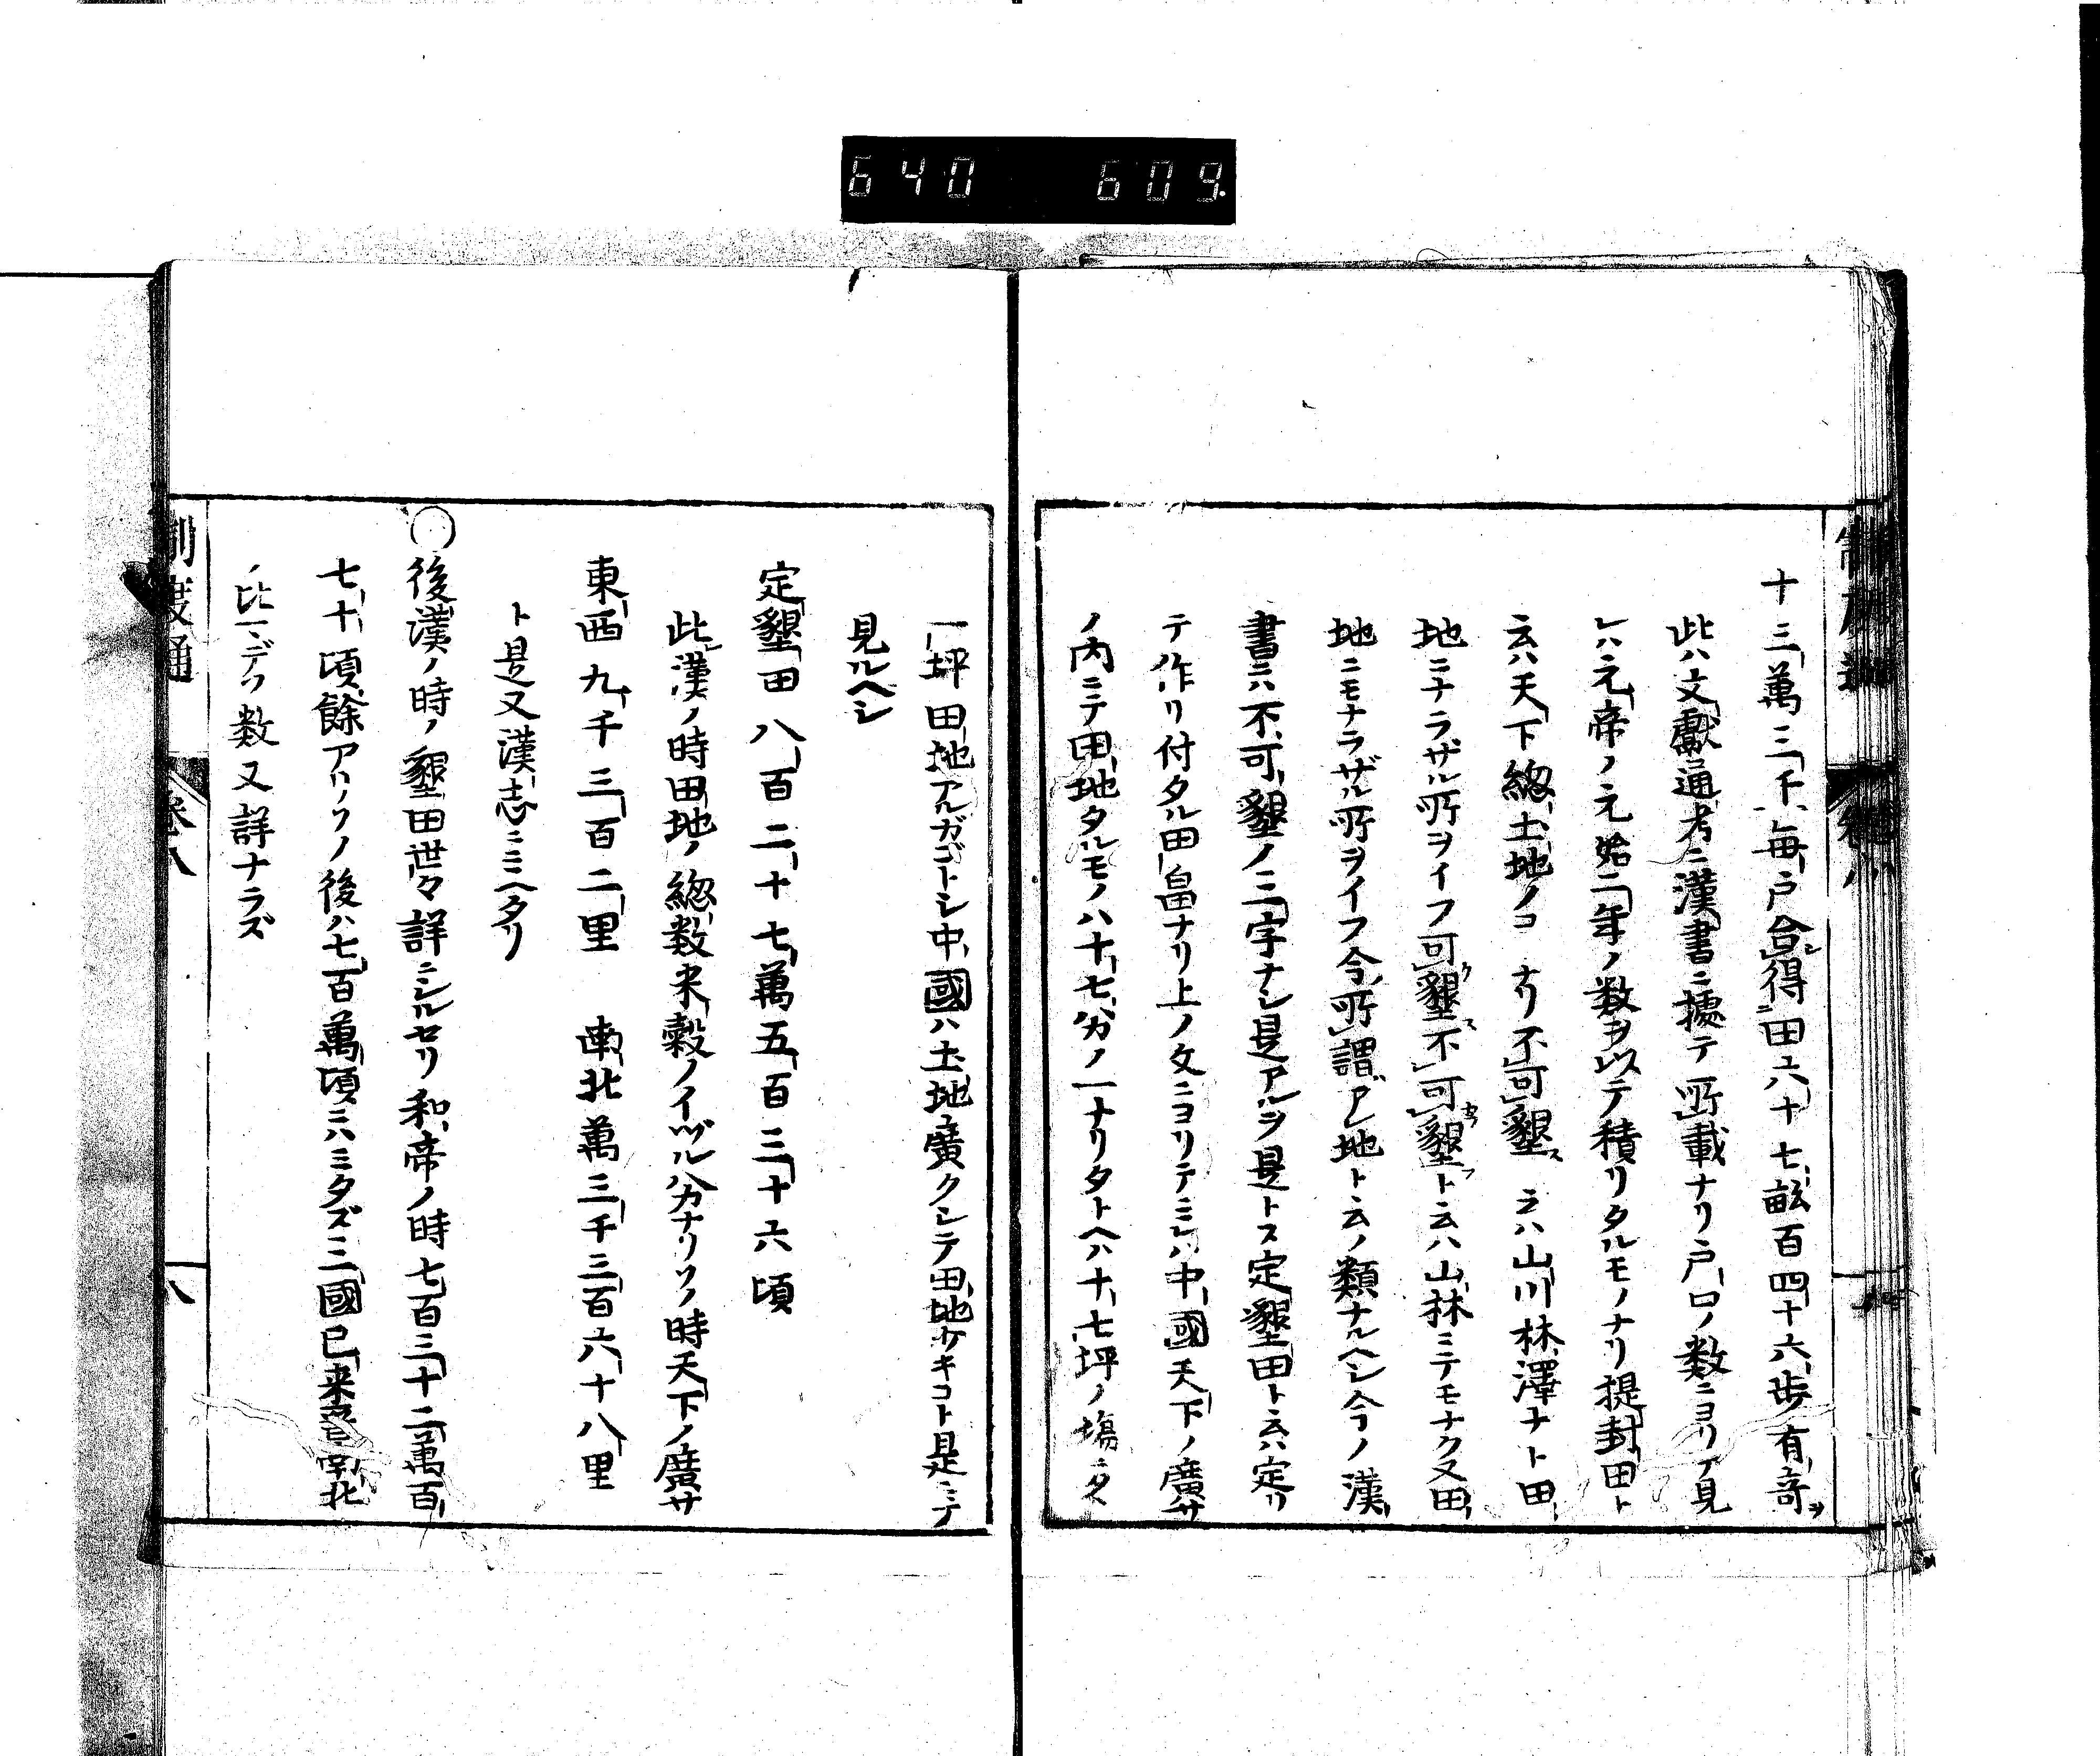 640 609
十三萬三千毎戸合得田六十七畝百四十六歩有奇
此ハ文獻通考ニ漢書ニ據テ所載ナリ戸口ノ数ニヨリテ見
レハ元帝ノ元始二年ノ数ヲ以テ積リタルモノナリ提封田ト
云ハ天下総土地ノコナリ不可墾云ハ山川林澤ナト田
地ニナラザル所ヲイフ可墾不可墾ト云ハ山林ニテモナク又田
地ニモナラザル所ヲイフ今所謂アレ地ト云ノ類ナルヘシ今ノ漢
書ニハ不可墾ノ三字ナシ是アルヲ是トス定墾田ト云ハ定リ
テ作リ付タル田畠ナリ上ノ文ニヨリテミレハ中國天下ノ廣サ
ノ内ニテ田地タルモノハ十七分ノ一ナリタトヘハ十七坪ノ塲ニタ
一坪田地アルガゴトシ中國ハ土地廣クシテ田地少キコト是ニテ
見ルヘシ
定墾田八百二十七萬五百三十六頃
此漢ノ時田地ノ総数米穀ノイヅル分ナリソノ時天下ノ廣サ
東西九千三百二里 南北萬三千三百六十八里
ト是又漢志ニミヘタリ
〇後漢ノ時ノ墾田世々詳ニシルセリ和帝ノ時七百三十二萬百
七十頃餘アリソノ後ハ七百萬頃ニハミタズ三國已来晋南北
ノ比マデノ数又詳ナラズ
制度通 巻八 八